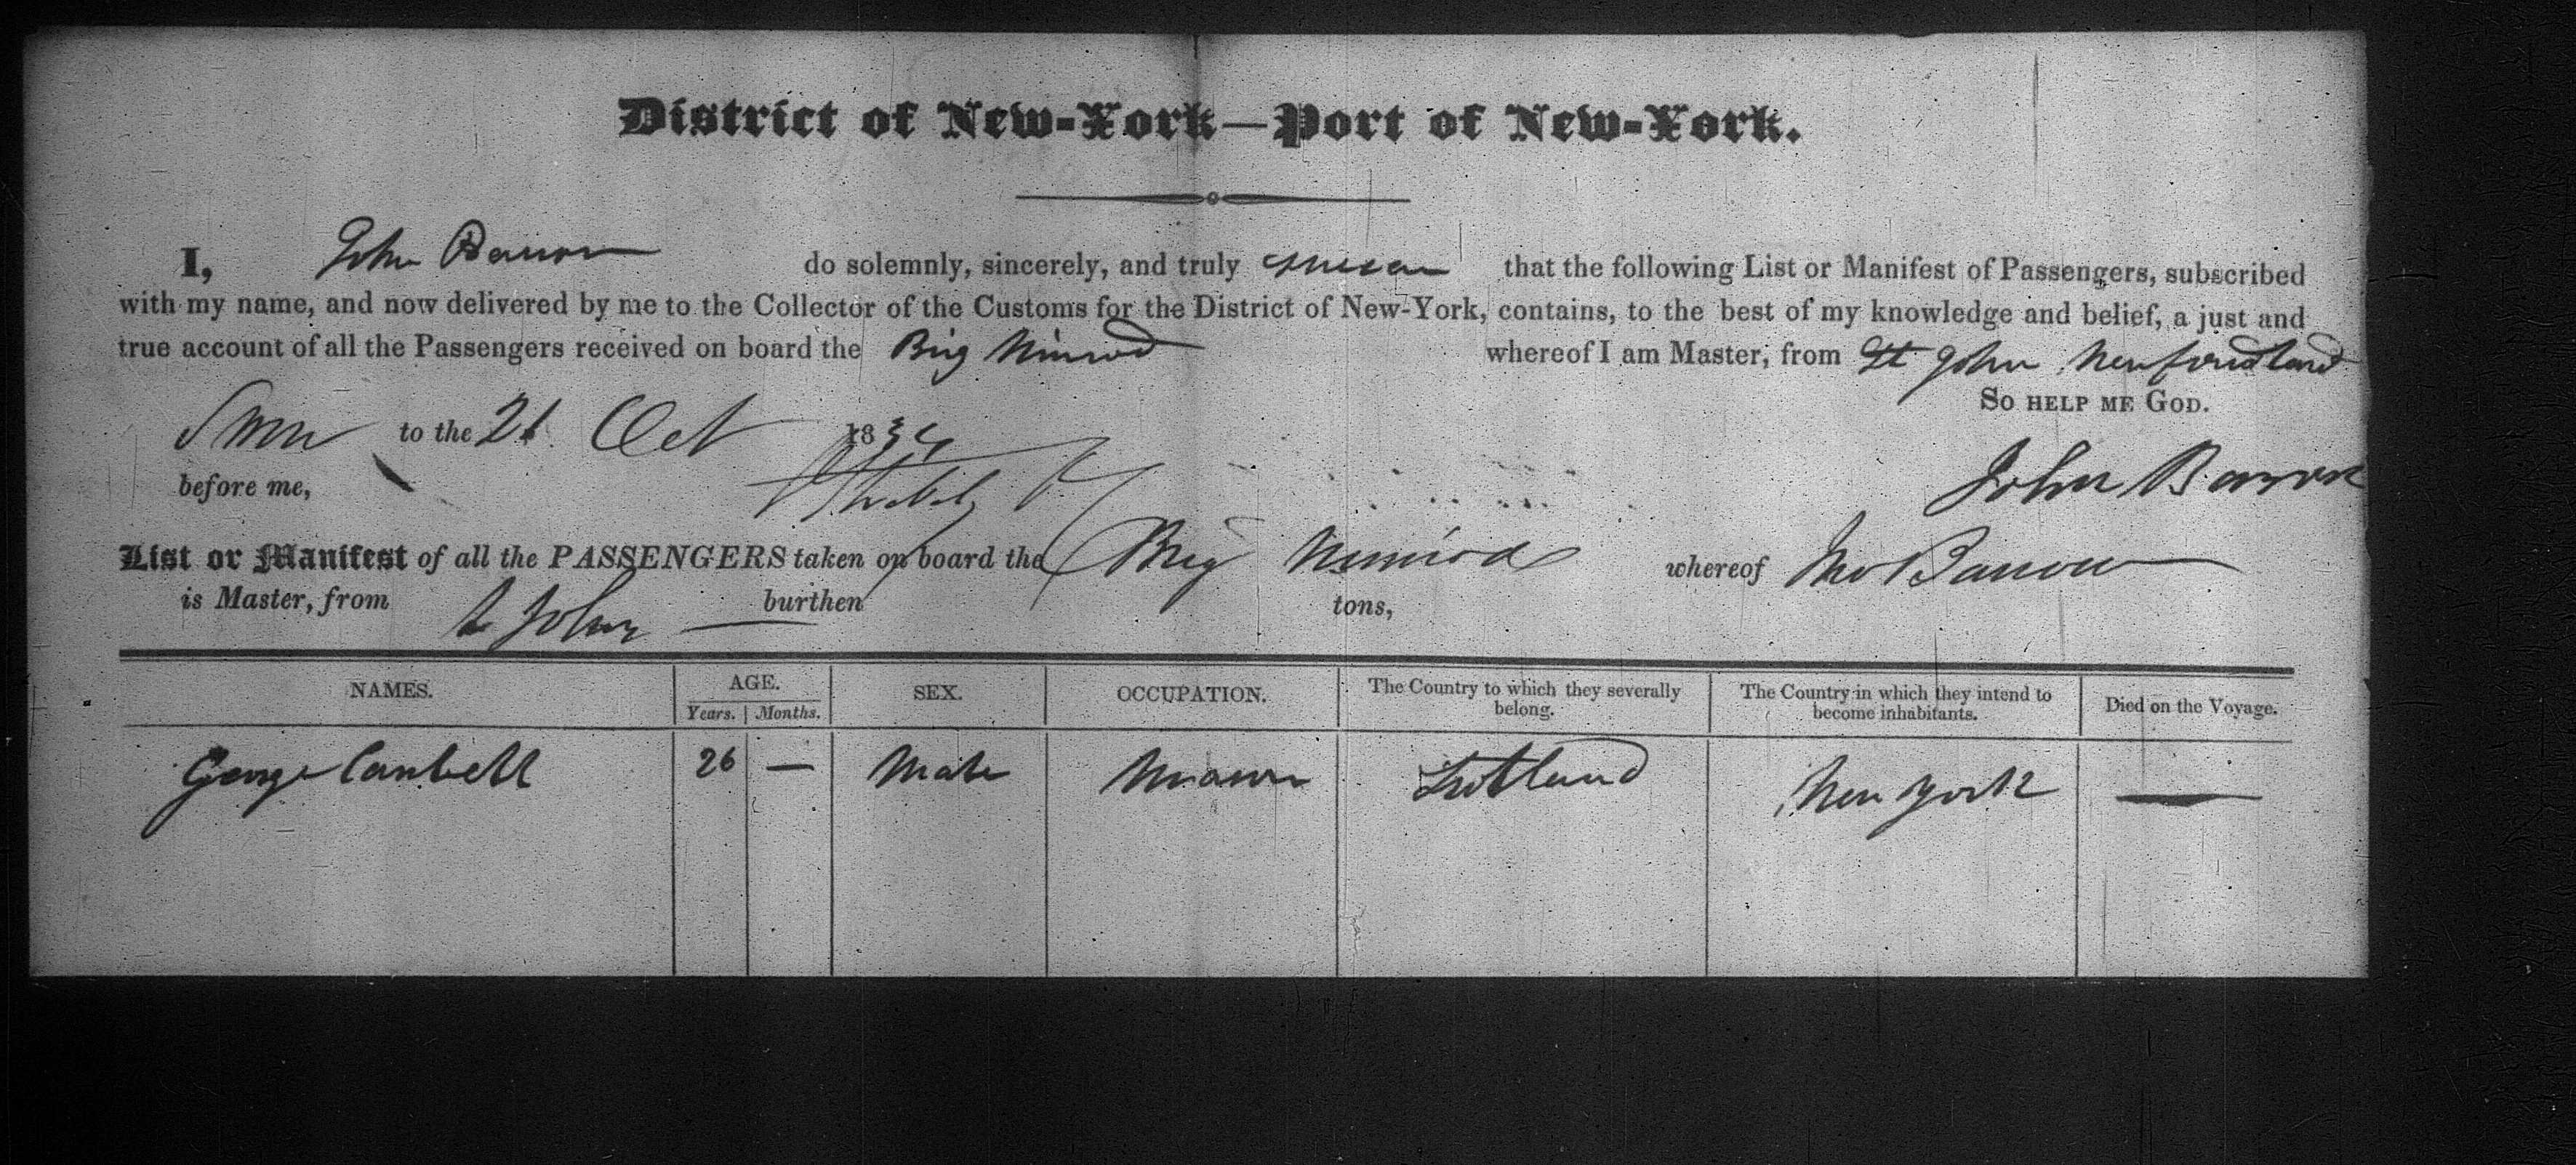 District of New-York—Port of New-York.
I, John Barron do solemnly, sincerely, and truly swear that the following List or Manifest of Passengers, subscribed
with my name, and now delivered by me to the Collector of the Customs for the District of New-York, contains, to the best of my knowledge and belief, a just and
true account of all the Passengers received on board the Brig Nimrod whereof I am Master, from St John Newfoundland
So help me God.
Sworn to the 21 Oct 1834
before me,
John Barron
List or Manifest of all the PASSENGERS taken on board the Brig Nimrod whereof Jno Barron
is Master, from St Johns burthen tons,
NAMES. AGE. SEX. OCCUPATION. The Country to which they severally belong. The Country in which they intend to become inhabitants. Died on the Voyage.
Years. Months.
George Canbell 26 — Male Mason Scotland New York —